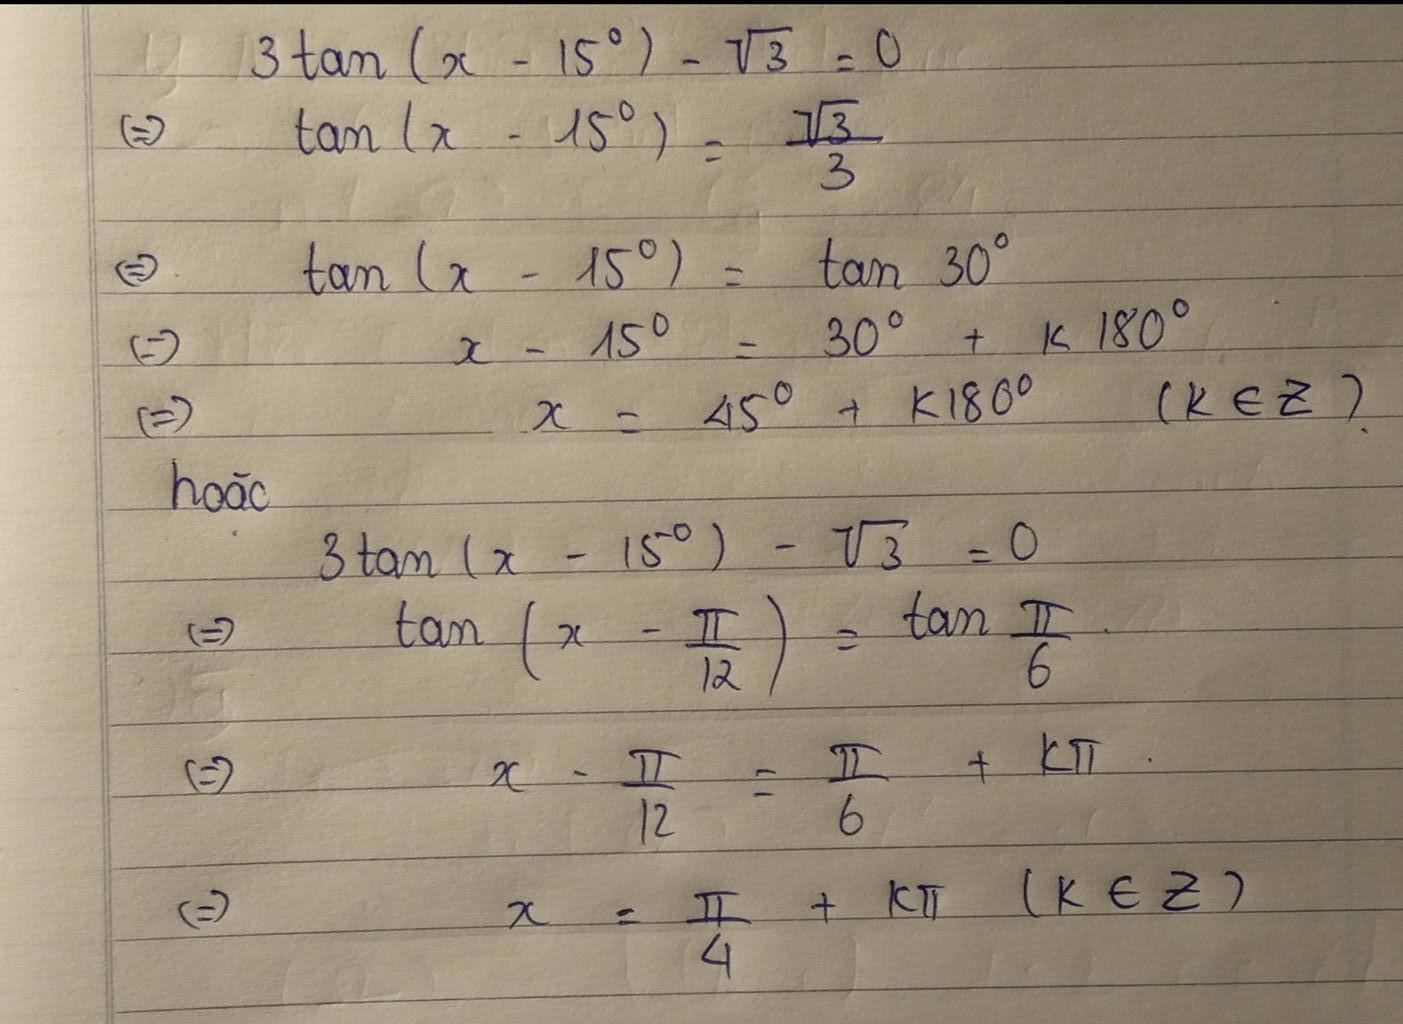 3 tan (x - 15°) - √3 = 0
(=) tan (x - 15°) = √3/3
(=) tan (x - 15°) = tan 30°
(=) x - 15° = 30° + K 180°
(=) x = 45° + K180° (K ∈ Z)
hoăc
3 tan (x - 15°) - √3 = 0
(=) tan (x - π/12) = tan π/6
(=) x - π/12 = π/6 + Kπ
(=) x = π/4 + Kπ (K ∈ Z)